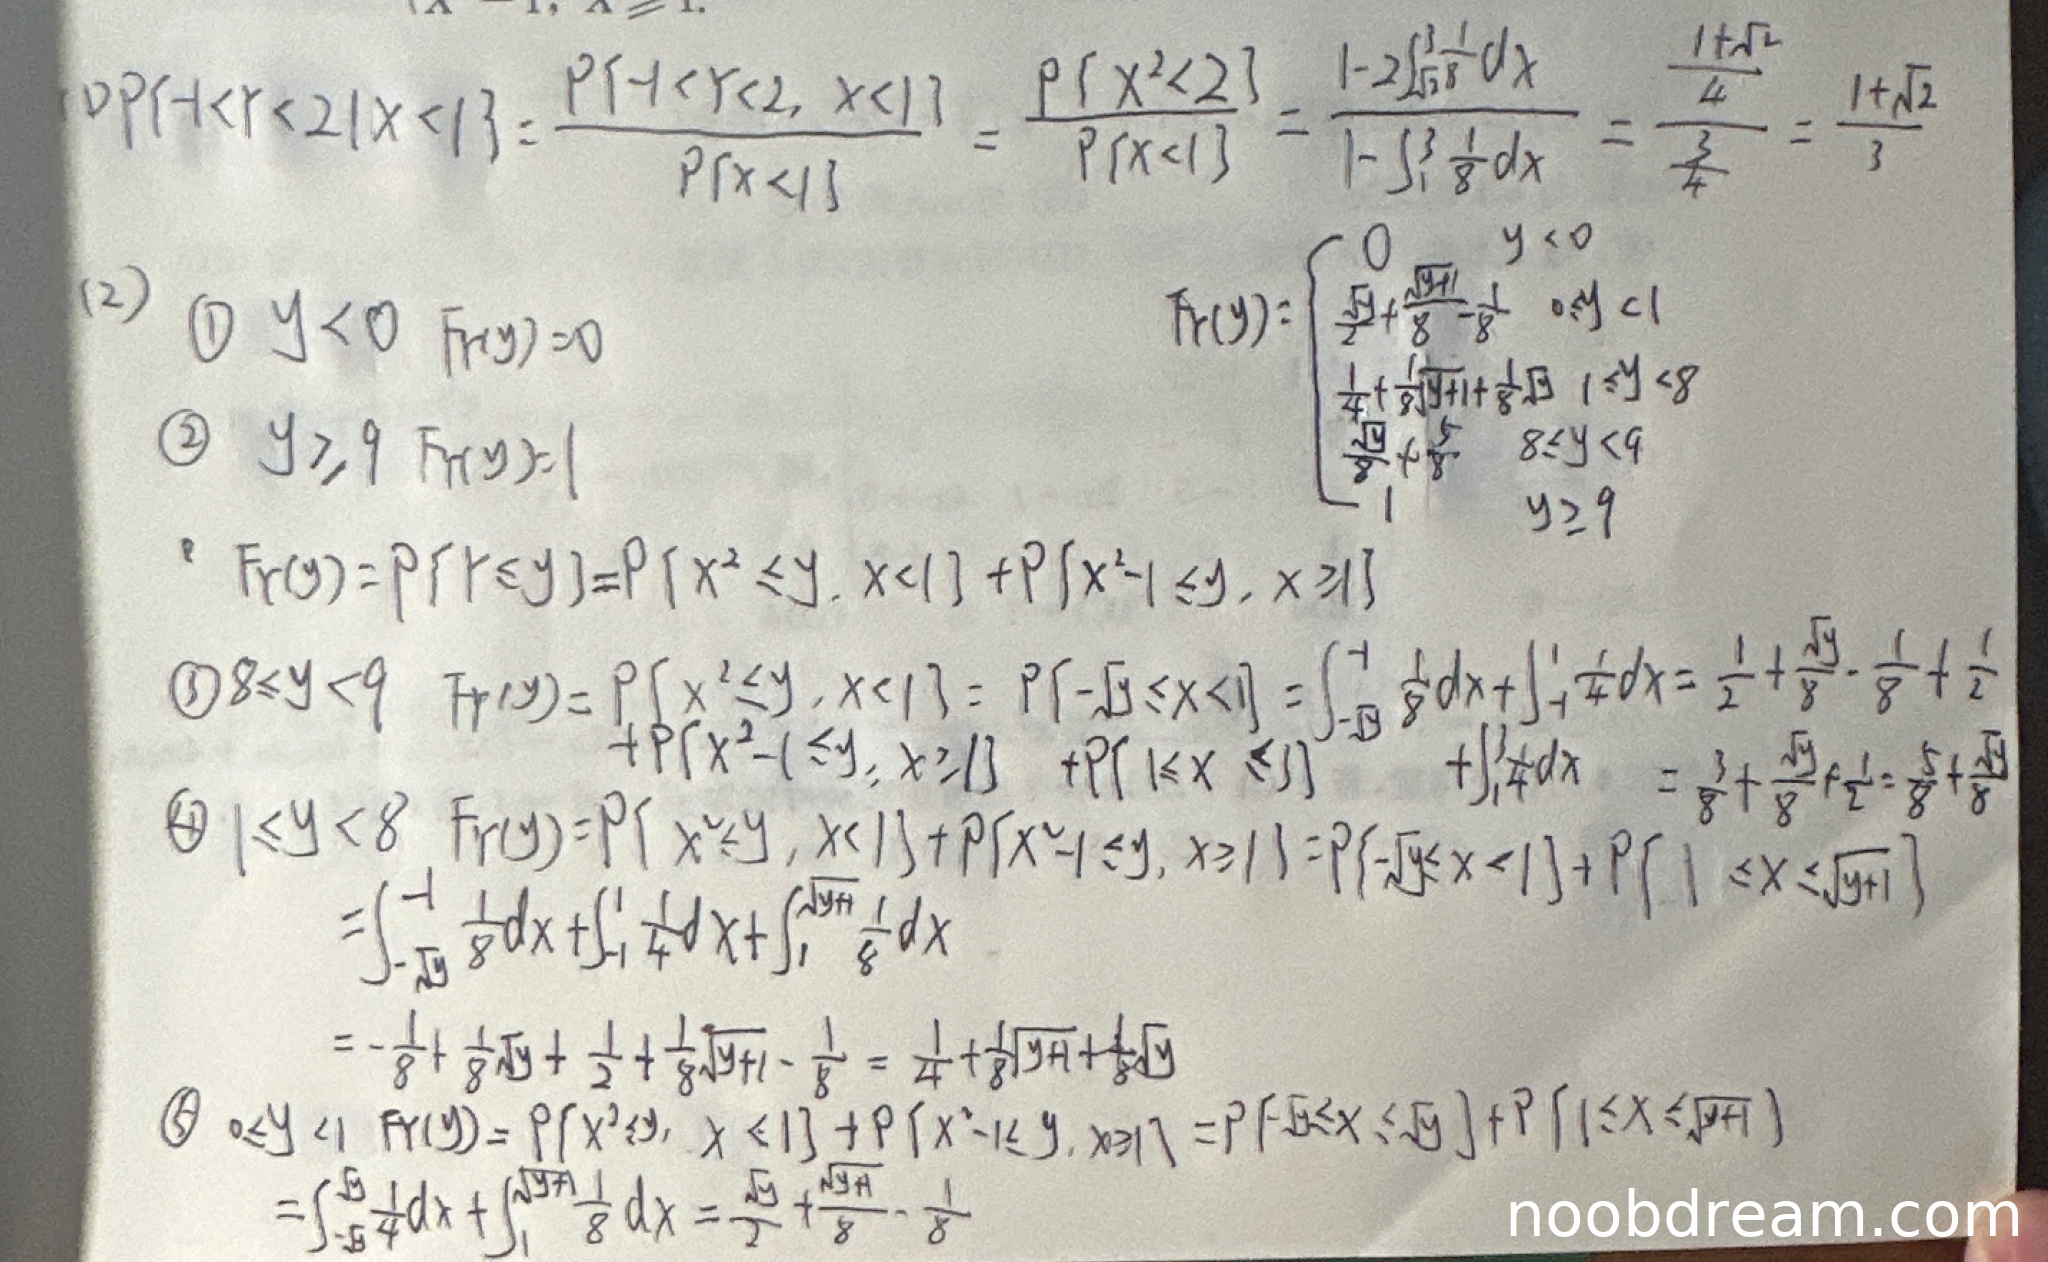 x² - 1, x ⩾ 1.
P{-1<Y<2|X<1} = P{-1<Y<2, X<1} / P{X<1} = P{X²<2} / P{X<1} = (1-2∫_{√2}^{3} 1/8 dx) / (1-∫_{1}^{3} 1/8 dx) = ((1+√2)/4) / (3/4) = (1+√2)/3
(2) ① y<0 F_Y(y)=0
② y⩾9 F_Y(y)=1
F_Y(y)= { 0 y<0
√y/2 + √(y+1)/8 - 1/8 0≤y<1
1/4 + 1/8√(y+1) + 1/8√y 1≤y<8
√y/8 + 5/8 8≤y<9
1 y≥9
F_Y(y)=P{Y≤y}=P{X²≤y, X<1}+P{X²-1≤y, X≥1}
③ 8≤y<9 F_Y(y)= P{X²≤y, X<1} = P{-√y≤X<1} = ∫_{-√y}^{-1} 1/8 dx + ∫_{-1}^{1} 1/4 dx = 1/2 + √y/8 - 1/8 + 1/2
+P{X²-1≤y, X≥1} +P{1≤X≤3} +∫_{1}^{3} 1/4 dx = 3/8 + √y/8 + 1/2 = 5/8 + √y/8
④ 1≤y<8 F_Y(y)=P{X²≤y, X<1}+P{X²-1≤y, X≥1}=P{-√y≤X<1}+P{1≤X≤√(y+1)}
=∫_{-√y}^{-1} 1/8 dx + ∫_{-1}^{1} 1/4 dx + ∫_{1}^{√(y+1)} 1/8 dx
= -1/8 + 1/8√y + 1/2 + 1/8√(y+1) - 1/8 = 1/4 + 1/8√(y+1) + 1/8√y
⑤ 0≤y<1 F_Y(y)= P{X²≤y, X≤1}+P{X²-1≤y, X≥1} =P{-√y≤X≤√y}+P{1≤X≤√(y+1)}
=∫_{-√y}^{√y} 1/4 dx + ∫_{1}^{√(y+1)} 1/8 dx = √y/2 + √(y+1)/8 - 1/8
noobdream.com